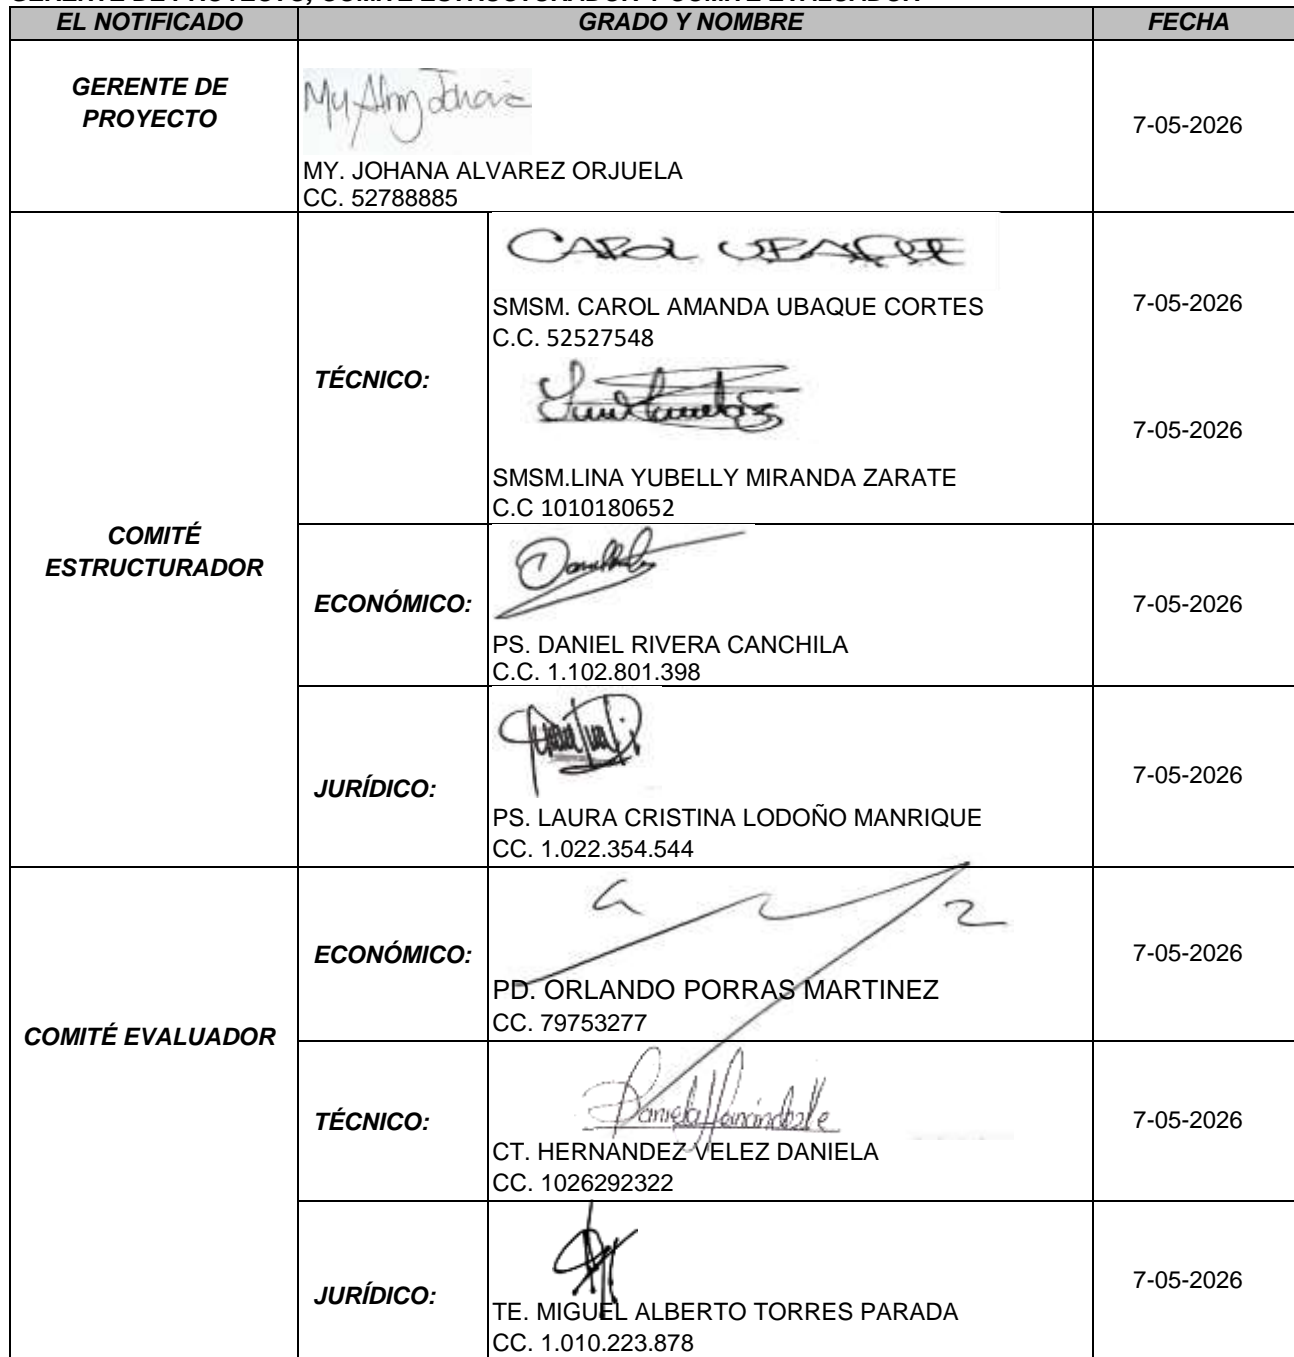 GERENTE DE PROYECTO, COMITÉ ESTRUCTURADOR Y COMITÉ EVALUADOR
EL NOTIFICADO GRADO Y NOMBRE FECHA
GERENTE DE
PROYECTO
My Johana
MY. JOHANA ALVAREZ ORJUELA
CC. 52788885
7-05-2026
COMITÉ
ESTRUCTURADOR
TÉCNICO:
CAROL UBAQUE
SMSM. CAROL AMANDA UBAQUE CORTES
C.C. 52527548
7-05-2026
SMSM.LINA YUBELLY MIRANDA ZARATE
C.C 1010180652
7-05-2026
ECONÓMICO:
PS. DANIEL RIVERA CANCHILA
C.C. 1.102.801.398
7-05-2026
JURÍDICO:
PS. LAURA CRISTINA LODOÑO MANRIQUE
CC. 1.022.354.544
7-05-2026
COMITÉ EVALUADOR
ECONÓMICO:
PD. ORLANDO PORRAS MARTINEZ
CC. 79753277
7-05-2026
TÉCNICO:
CT. HERNANDEZ VELEZ DANIELA
CC. 1026292322
7-05-2026
JURÍDICO:
TE. MIGUEL ALBERTO TORRES PARADA
CC. 1.010.223.878
7-05-2026